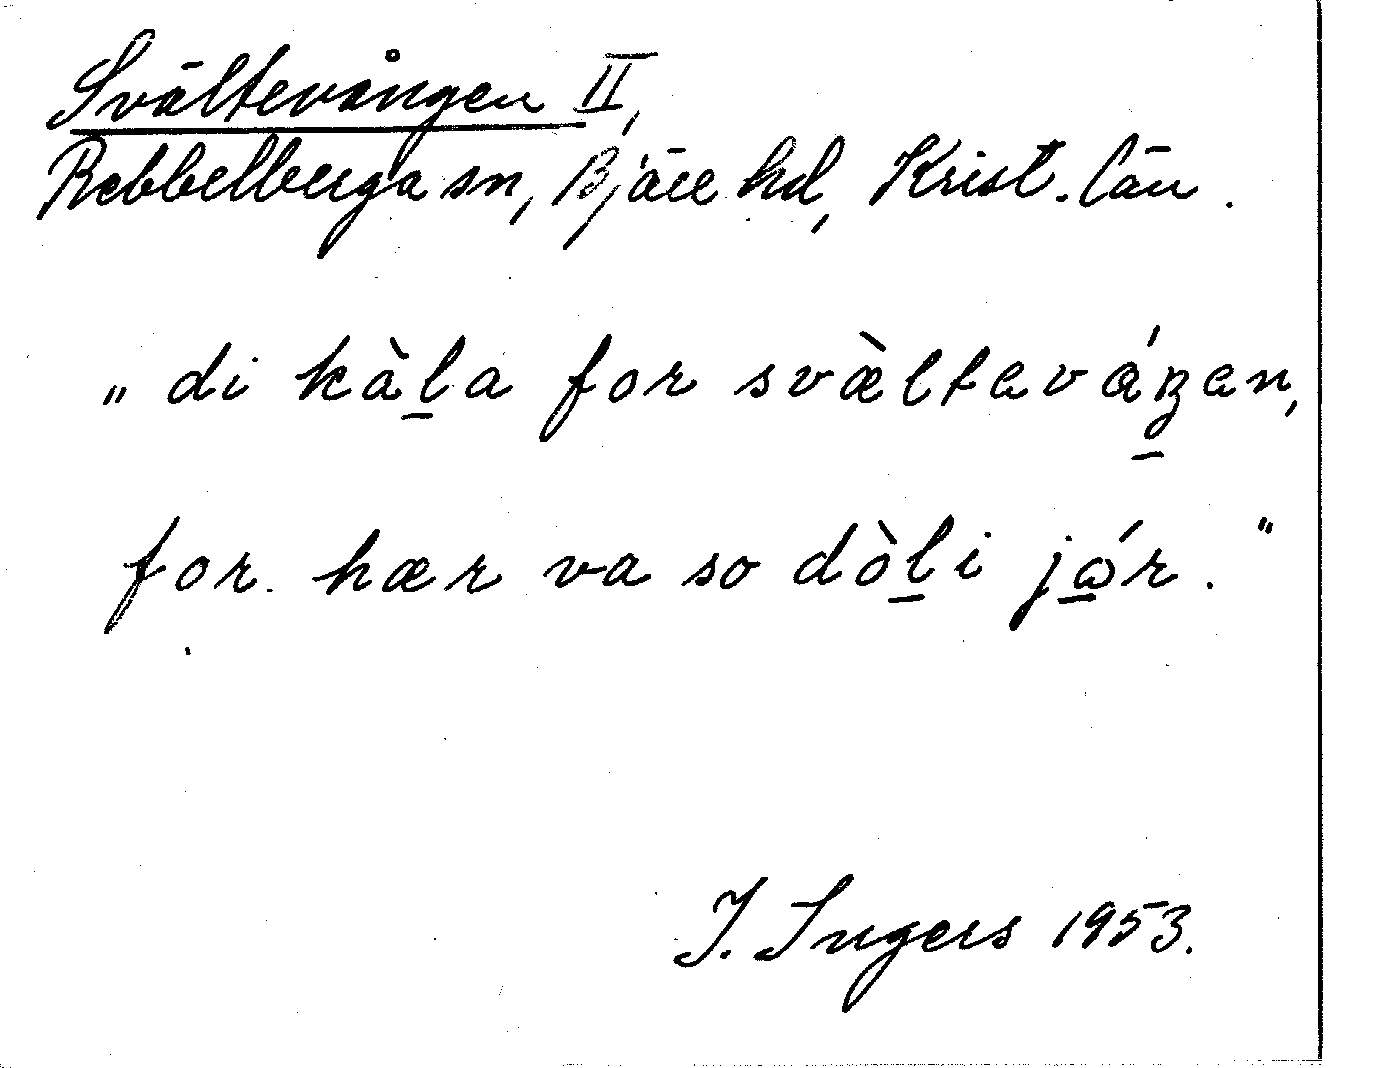 Svältevången II,
Rebbelberga sn, Bjäre hd, Krist. län.
„di kàl̲a for svæ̀lteváŋ̲en,
for hær va so dòl̲i jɷ̲́r."
I. Ingers 1953.